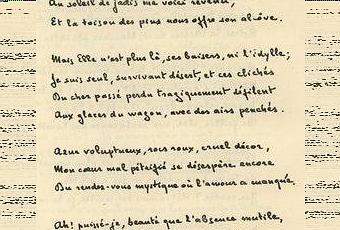 Au soleil de jadis me voici revenu,
Et la toison des pins nous offre son alcôve.
Mais Elle n'est plus là, ses baisers, ni l'idylle;
Je suis seul, survivant désert, et ces clichés
Du cher passé perdu tragiquement défilent
Aux glaces du wagon, avec des airs penchés.
Azur voluptueux, rocs roux, cruel décor,
Mon cœur mal pétrifié se désespère encore
Du rendez-vous mystique où l'amour a manqué.
Ah! puissé-je, beauté que l'absence mutile,